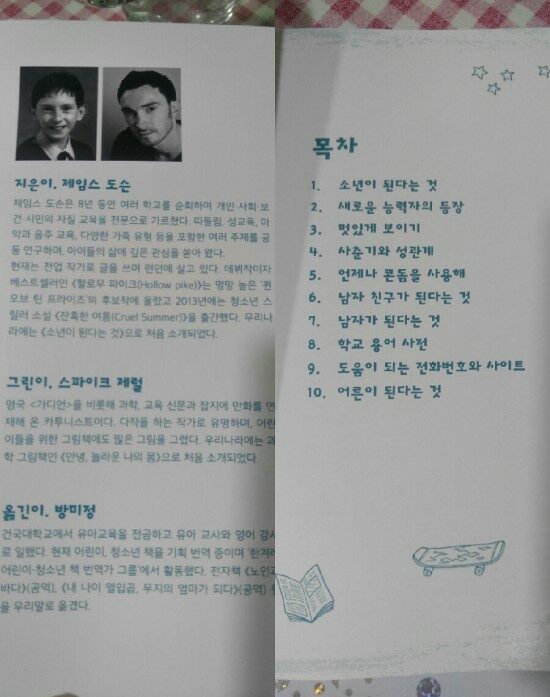 지은이. 제임스 도슨
제임스 도슨은 8년 동안 여러 학교를 순회하며 개인·사회·보
건·시민의 자질 교육을 전문으로 가르쳤다. 따돌림, 성교육, 마
약과 음주 교육, 다양한 가족 유형 등을 포함한 여러 주제를 공
동 연구하며, 아이들의 삶에 깊은 관심을 쏟아 왔다.
현재는 전업 작가로 글을 쓰며 런던에 살고 있다. 데뷔작이자
베스트셀러인 《할로우 파이크(Hollow pike)》는 명망 높은 '퀸
오브 틴 프라이즈'의 후보작에 올랐고 2013년에는 청소년 스
릴러 소설 《잔혹한 여름(Cruel Summer)》을 출간했다. 우리나
라에는 《소년이 된다는 것》으로 처음 소개되었다.
그린이. 스파이크 제럴
영국 <가디언>을 비롯해 과학, 교육 신문과 잡지에 만화를 연
재해 온 카투니스트이다. 다작을 하는 작가로 유명하며, 어린
이들을 위한 그림책에도 많은 그림을 그렸다. 우리나라에는 과
학 그림책인 《안녕, 놀라운 나의 몸》으로 처음 소개되었다.
옮긴이. 방미정
건국대학교에서 유아교육을 전공하고 유아 교사와 영어 강사
로 일했다. 현재 어린이, 청소년 책을 기획 번역 중이며 '한겨레
어린이·청소년 책 번역가 그룹'에서 활동했다. 전자책 《노인과
바다》(공역), 《내 나이 열입곱, 무지의 엄마가 되다》(공역)
를 우리말로 옮겼다.
목차
1. 소년이 된다는 것
2. 새로운 능력자의 등장
3. 멋있게 보이기
4. 사춘기와 성관계
5. 언제나 콘돔을 사용해
6. 남자 친구가 된다는 것
7. 남자가 된다는 것
8. 학교 용어 사전
9. 도움이 되는 전화번호와 사이트
10. 어른이 된다는 것